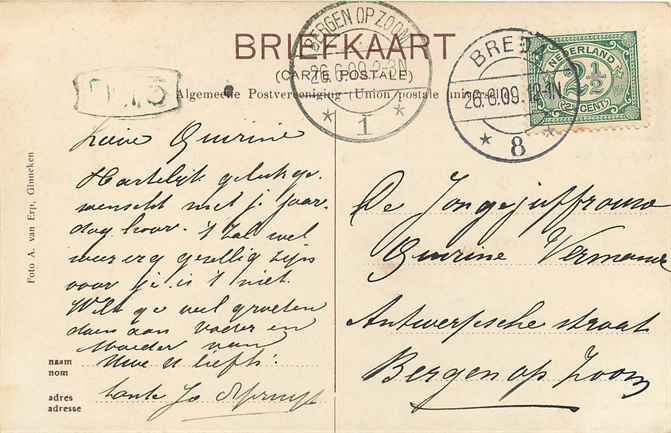 BRIEFKAART
(CARTE POSTALE)
Algemeene Postvereeniging (Union postale universelle)
BERGEN OP ZOOM
26.6.09.2-3N
1
BREDA
26.6.09.12-1N
8
NEDERLAND
2½
CENT
Foto A. van Erp, Ginneken
Lieve Quirine
Hartelijk geluk ge-
wenscht met je jaar-
dag hoor. 't Zal wel
weer erg gezellig zijn
voor je is 't niet.
Wilt ge veel groeten
doen aan vader en
Moeder van
Uwe U liefh.
tante Jo
naam
nom
adres
adresse
De Jongejuffrouw
Quirine
Antwerpsche straat
Bergen op Zoom